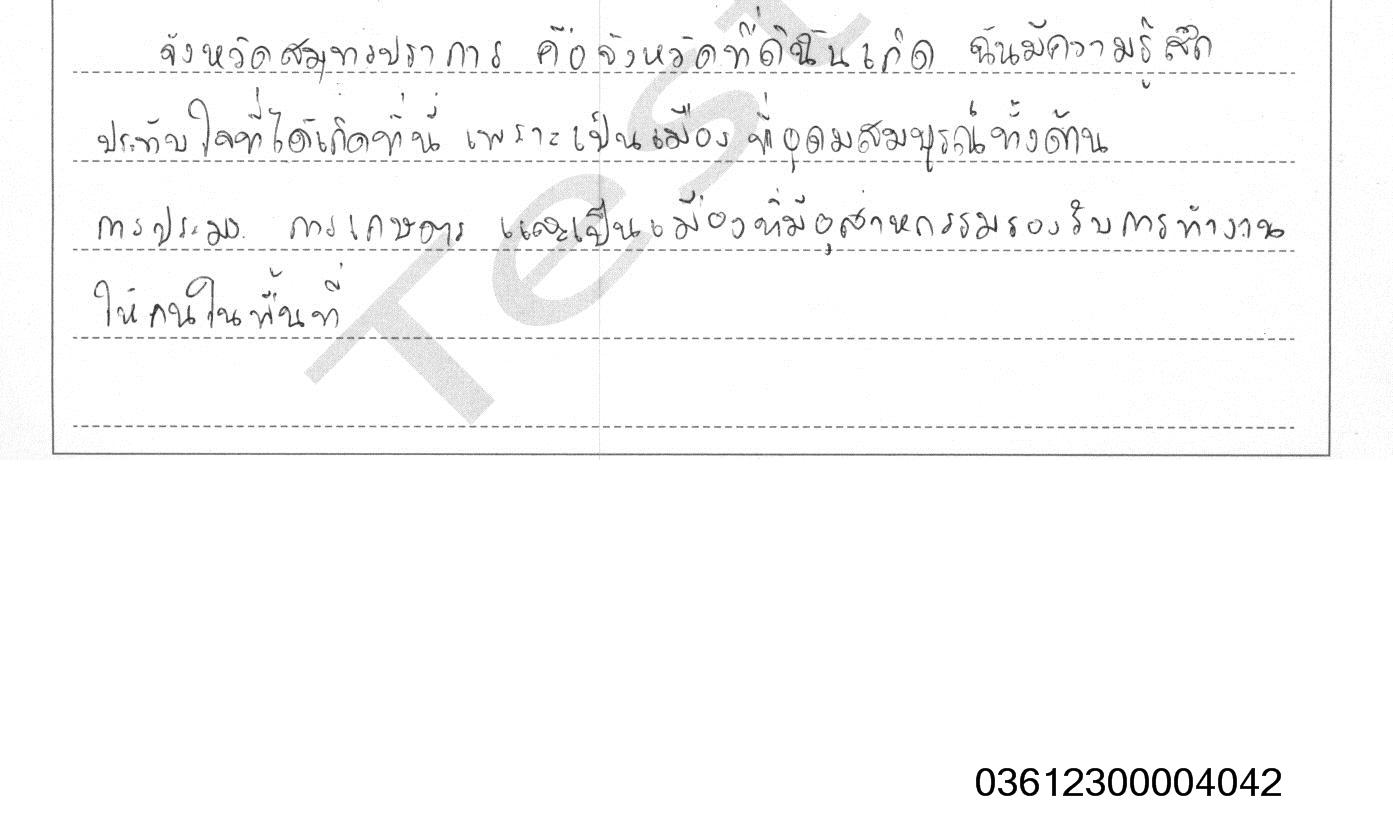 จังหวัดสมุทรปราการ คือจังหวัดที่ดิฉันเกิด ฉันมีความรู้สึก
ประทับใจที่ได้เกิดที่นี่ เพราะเป็นเมือง ที่อุดมสมบูรณ์ทั้งด้าน
การประมง การเกษตร และเป็นเมืองที่มีอุสาหกรรมรองรับการทำงาน
ให้คนในพื้นที่
Test
03612300004042